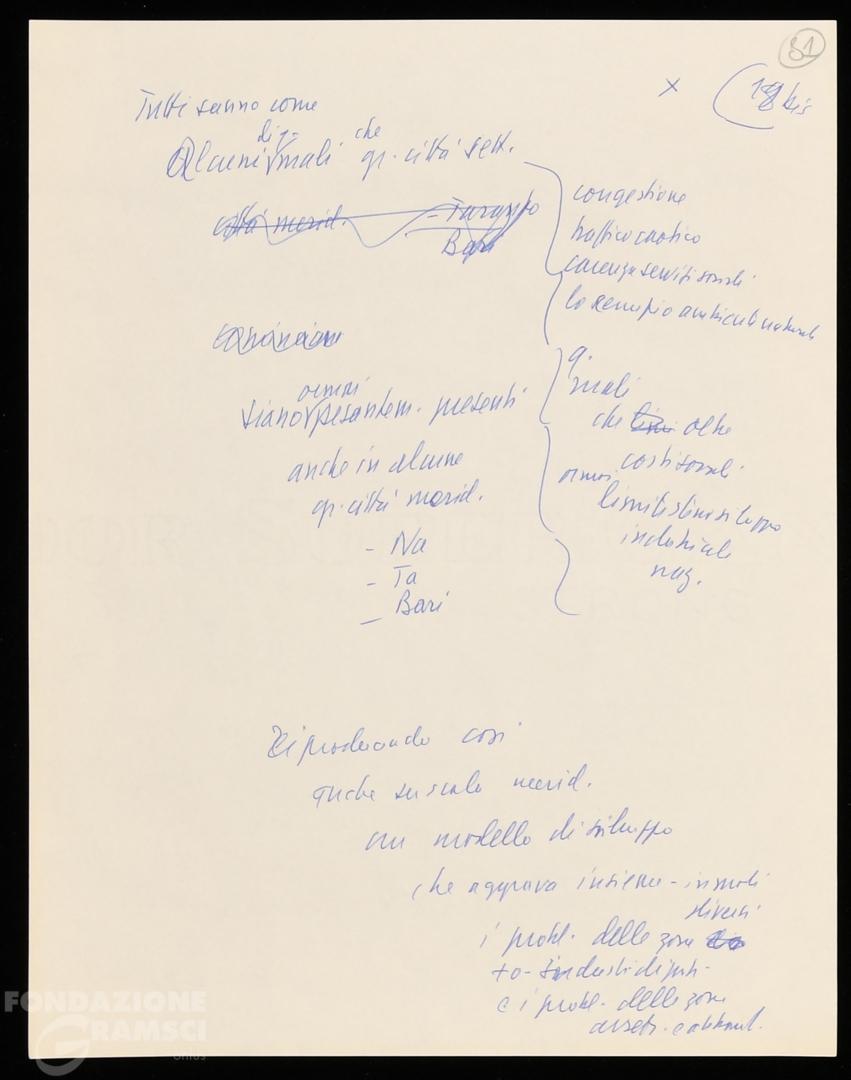 81
x
18 bis
Tutti sanno come
alcuni mali di q. che gr. città sett.
città merid. - Taranto
Bari
congestione
traffico caotico
carenza servizi sociali
lo scempio ambienti naturali
siano ormai pesantem. presenti
anche in alcune
gr. città merid.
- Na
- Ta
- Bari
q.
mali
che oltre
costi sociali
ormai
limiti stesso sviluppo
industriale
naz.
Riproducendo così
anche su scala merid.
un modello di sviluppo
che aggrava insieme - in modi
diversi
i probl. delle zone
+ o - industrializzati
e i probl. delle zone
arretr. e abband.
FONDAZIONE
GRAMSCI
onlus